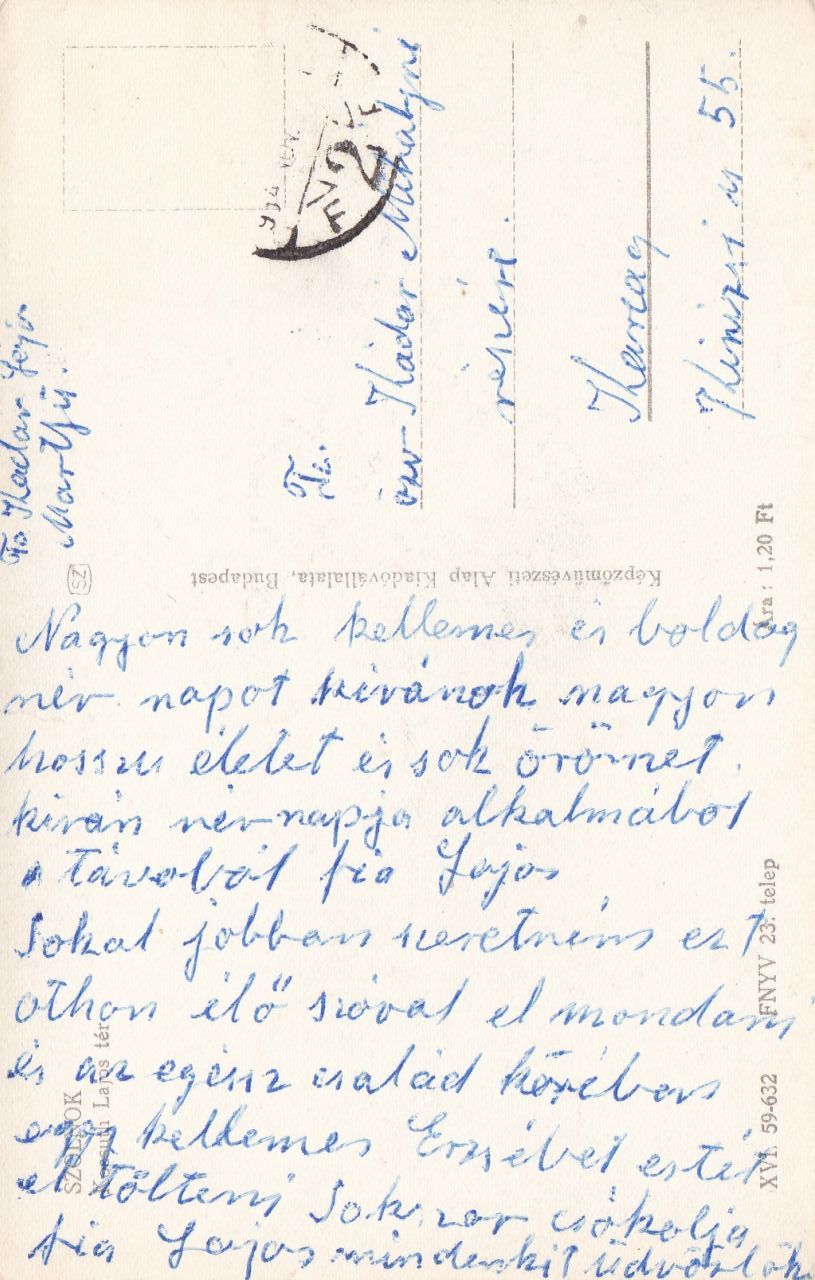 Fa Kádár Lajos
Martfű.
Fa.
özv Kádár Mihályné
részére.
Karcag
Kinizsi u 55.
Képzőművészeti Alap Kiadóvállalata, Budapest
SZ
Ára: 1,20 Ft
Nagyon sok kellemes és boldog
név napot kivánok nagyon
hosszu életet és sok örömet.
kíván névnapja alkalmából
a távolból fia Lajos
Sokal jobban szeretném ezt
othon élő szóval el mondani
és az egész család körében
egy kellemes Erzsébet estét
el tölteni Sokszor csókolja
fia Lajos mindenkit üdvözlök
SZOLNOK
Kossuth Lajos tér
XVI. 59-632 FNYV 23. telep